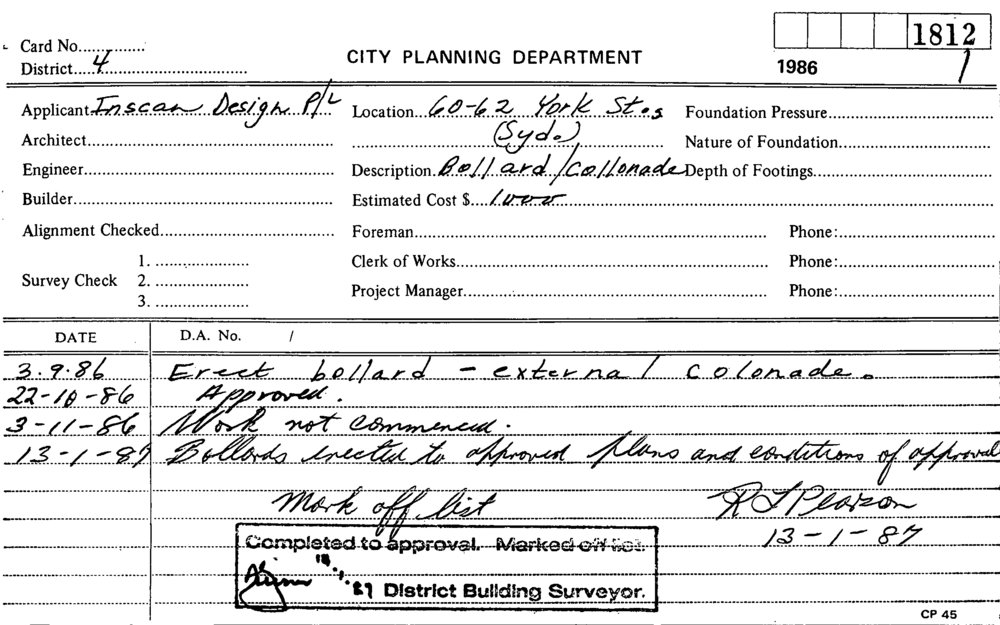 1812
Card No.
CITY PLANNING DEPARTMENT
District 4
1986 1
Applicant Inscan Design P/L Location 60-62 York St. Foundation Pressure
Architect (Syd.) Nature of Foundation
Engineer Description Bollard/Collonade Depth of Footings
Builder Estimated Cost $ 1000
Alignment Checked Foreman Phone:
1. Clerk of Works Phone:
Survey Check 2.
3. Project Manager Phone:
DATE D.A. No. /
3.9.86 Erect bollard - external colonade.
22-10-86 Approved.
3-11-86 Work not commenced.
13-1-87 Bollards erected to approved plans and conditions of approval
Mark off list R J Pearson
13-1-87
Completed to approval. Marked off list.
.1.87 District Building Surveyor.
CP 45